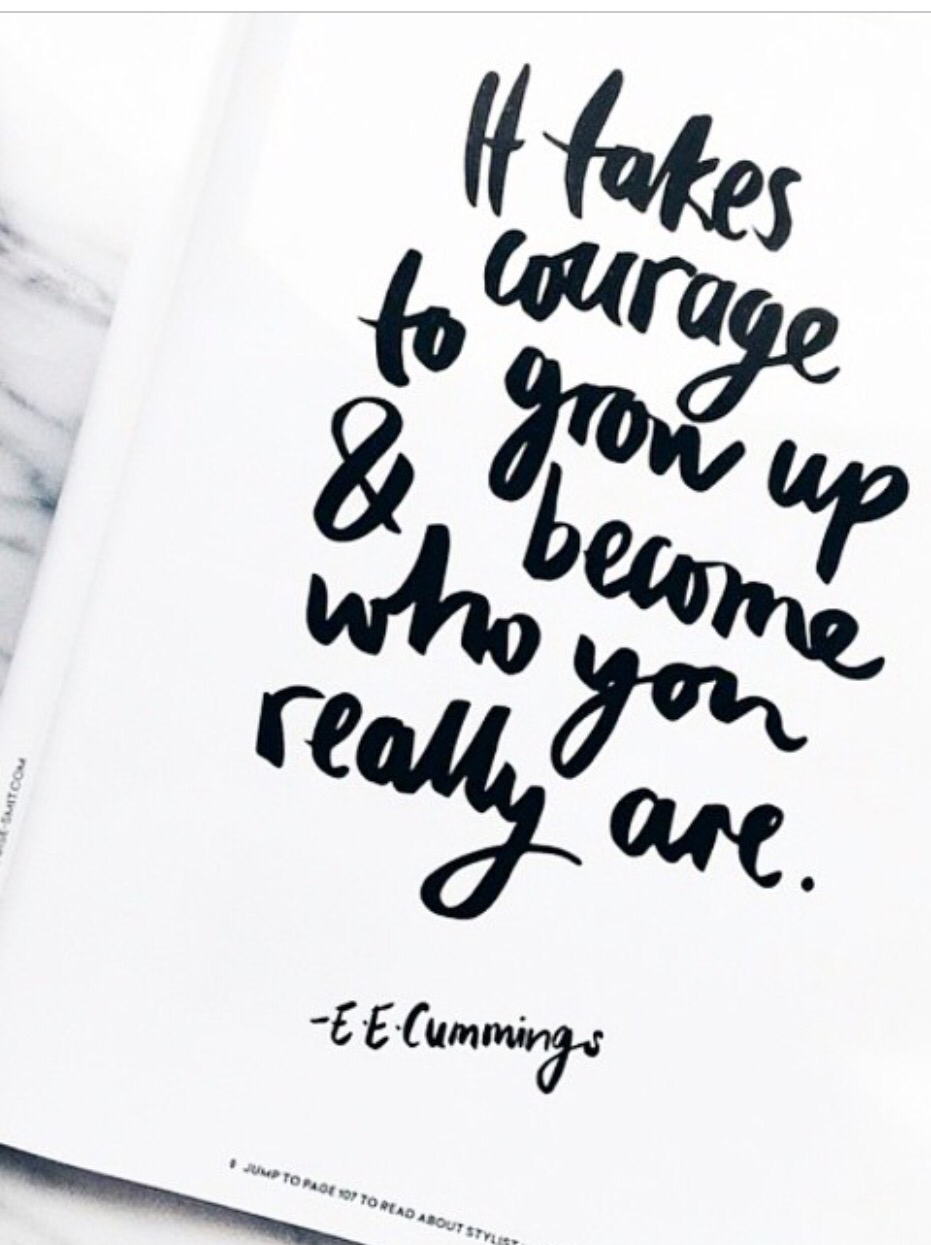 It takes
courage
to grow up
& become
who you
really are.
-E.E.Cummings
JUMP TO PAGE 107 TO READ ABOUT STYLIST